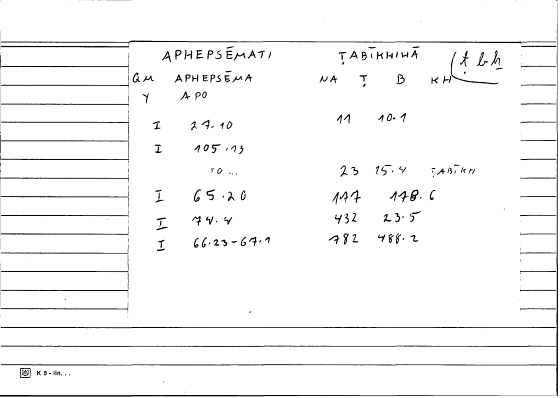 APHEPSĒMATI ṬABĪKHIHĀ ṭ b ḫ
QM APHEPSĒMA NA Ṭ B KH
Y APO
I 27.10 11 10.1
I 105.13
TO ... 23 15.4 ṬABĪKH
I 65.20 177 178.6
I 74.4 432 23.5
I 66.23-67.1 782 488.2
K 5 - lin. . .